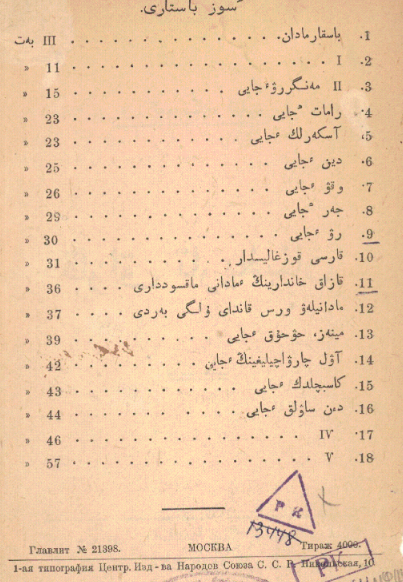 سوز باستارى.
1. باسقارمادان. . . . . . . . . . . . . III بەت
2. I . . . . . . . . . . . . . . . . 11 »
3. II مەنىگررۋ ٴجايى . . . . . . . . 15 »
4. رامات ٴجايى . . . . . . . . . . . 23 »
5. آسكەرلىك ٴجايى . . . . . . . . . 23 »
6. دين ٴجايى . . . . . . . . . . . . 25 »
7. وقۋ ٴجايى . . . . . . . . . . . . 26 »
8. جەر ٴجايى . . . . . . . . . . . . 29 »
9. رۋ ٴجايى . . . . . . . . . . . . . 30 »
10. قارسى قوزغالىسدار . . . . . . . 31 »
11. قازاق خاندارىنىڭ ٴمادانى ماقسوددارى 36 »
12. مادانيلەۋ ورس قانداى ۇلگى بەردى 37 »
13. مينەز، حوحۇق ٴجايى . . . . . . . 39 »
14. آۋل چارۋاچيليغينىڭ ٴجايى . . . . 42 »
15. كاسىبچىلدىك ٴجايى . . . . . . . 43 »
16. دەن ساۋلق ٴجايى . . . . . . . . 44 »
17. IV . . . . . . . . . . . . . . . 46 »
18. V . . . . . . . . . . . . . . . . 57 »
Р К
13448
Главлит № 21398. МОСКВА Тираж 4000.
1-ая типография Центр. Изд-ва Народов Союза С. С. Р. Никольская, 10.